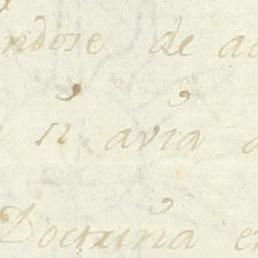 ndose de a
si avia
Doctrina e